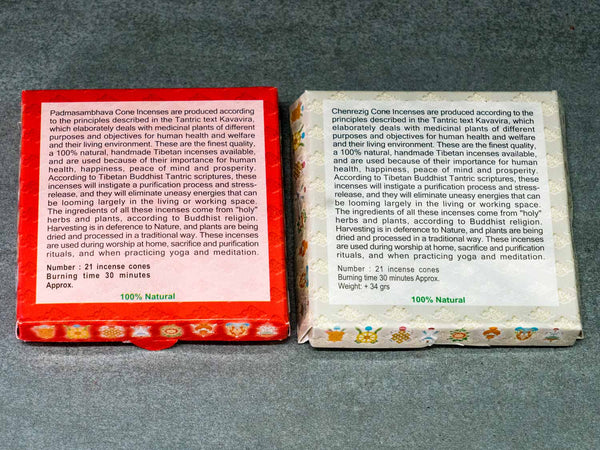 Padmasambhava Cone Incenses are produced according
to the principles described in the Tantric text Kavavira,
which elaborately deals with medicinal plants of different
purposes and objectives for human health and welfare
and their living environment. These are the finest quality,
a 100% natural, handmade Tibetan incenses available,
and are used because of their importance for human
health, happiness, peace of mind and prosperity.
According to Tibetan Buddhist Tantric scriptures, these
incenses will instigate a purification process and stress-
release, and they will eliminate uneasy energies that can
be looming largely in the living or working space.
The ingredients of all these incenses come from "holy"
herbs and plants, according to Buddhist religion.
Harvesting is in deference to Nature, and plants are being
dried and processed in a traditional way. These incenses
are used during worship at home, sacrifice and purification
rituals, and when practicing yoga and meditation.
Number : 21 incense cones
Burning time 30 minutes
Approx.
100% Natural
Chenrezig Cone Incenses are produced according to the
principles described in the Tantric text Kavavira, which
elaborately deals with medicinal plants of different
purposes and objectives for human health and welfare
and their living environment. These are the finest quality,
a 100% natural, handmade Tibetan incenses available,
and are used because of their importance for human
health, happiness, peace of mind and prosperity.
According to Tibetan Buddhist Tantric scriptures, these
incenses will instigate a purification process and stress-
release, and they will eliminate uneasy energies that can
be looming largely in the living or working space.
The ingredients of all these incenses come from "holy"
herbs and plants, according to Buddhist religion.
Harvesting is in deference to Nature, and plants are being
dried and processed in a traditional way. These incenses
are used during worship at home, sacrifice and purification
rituals, and when practicing yoga and meditation.
Number : 21 incense cones
Burning time 30 minutes Approx.
Weight: + 34 grs
100% Natural